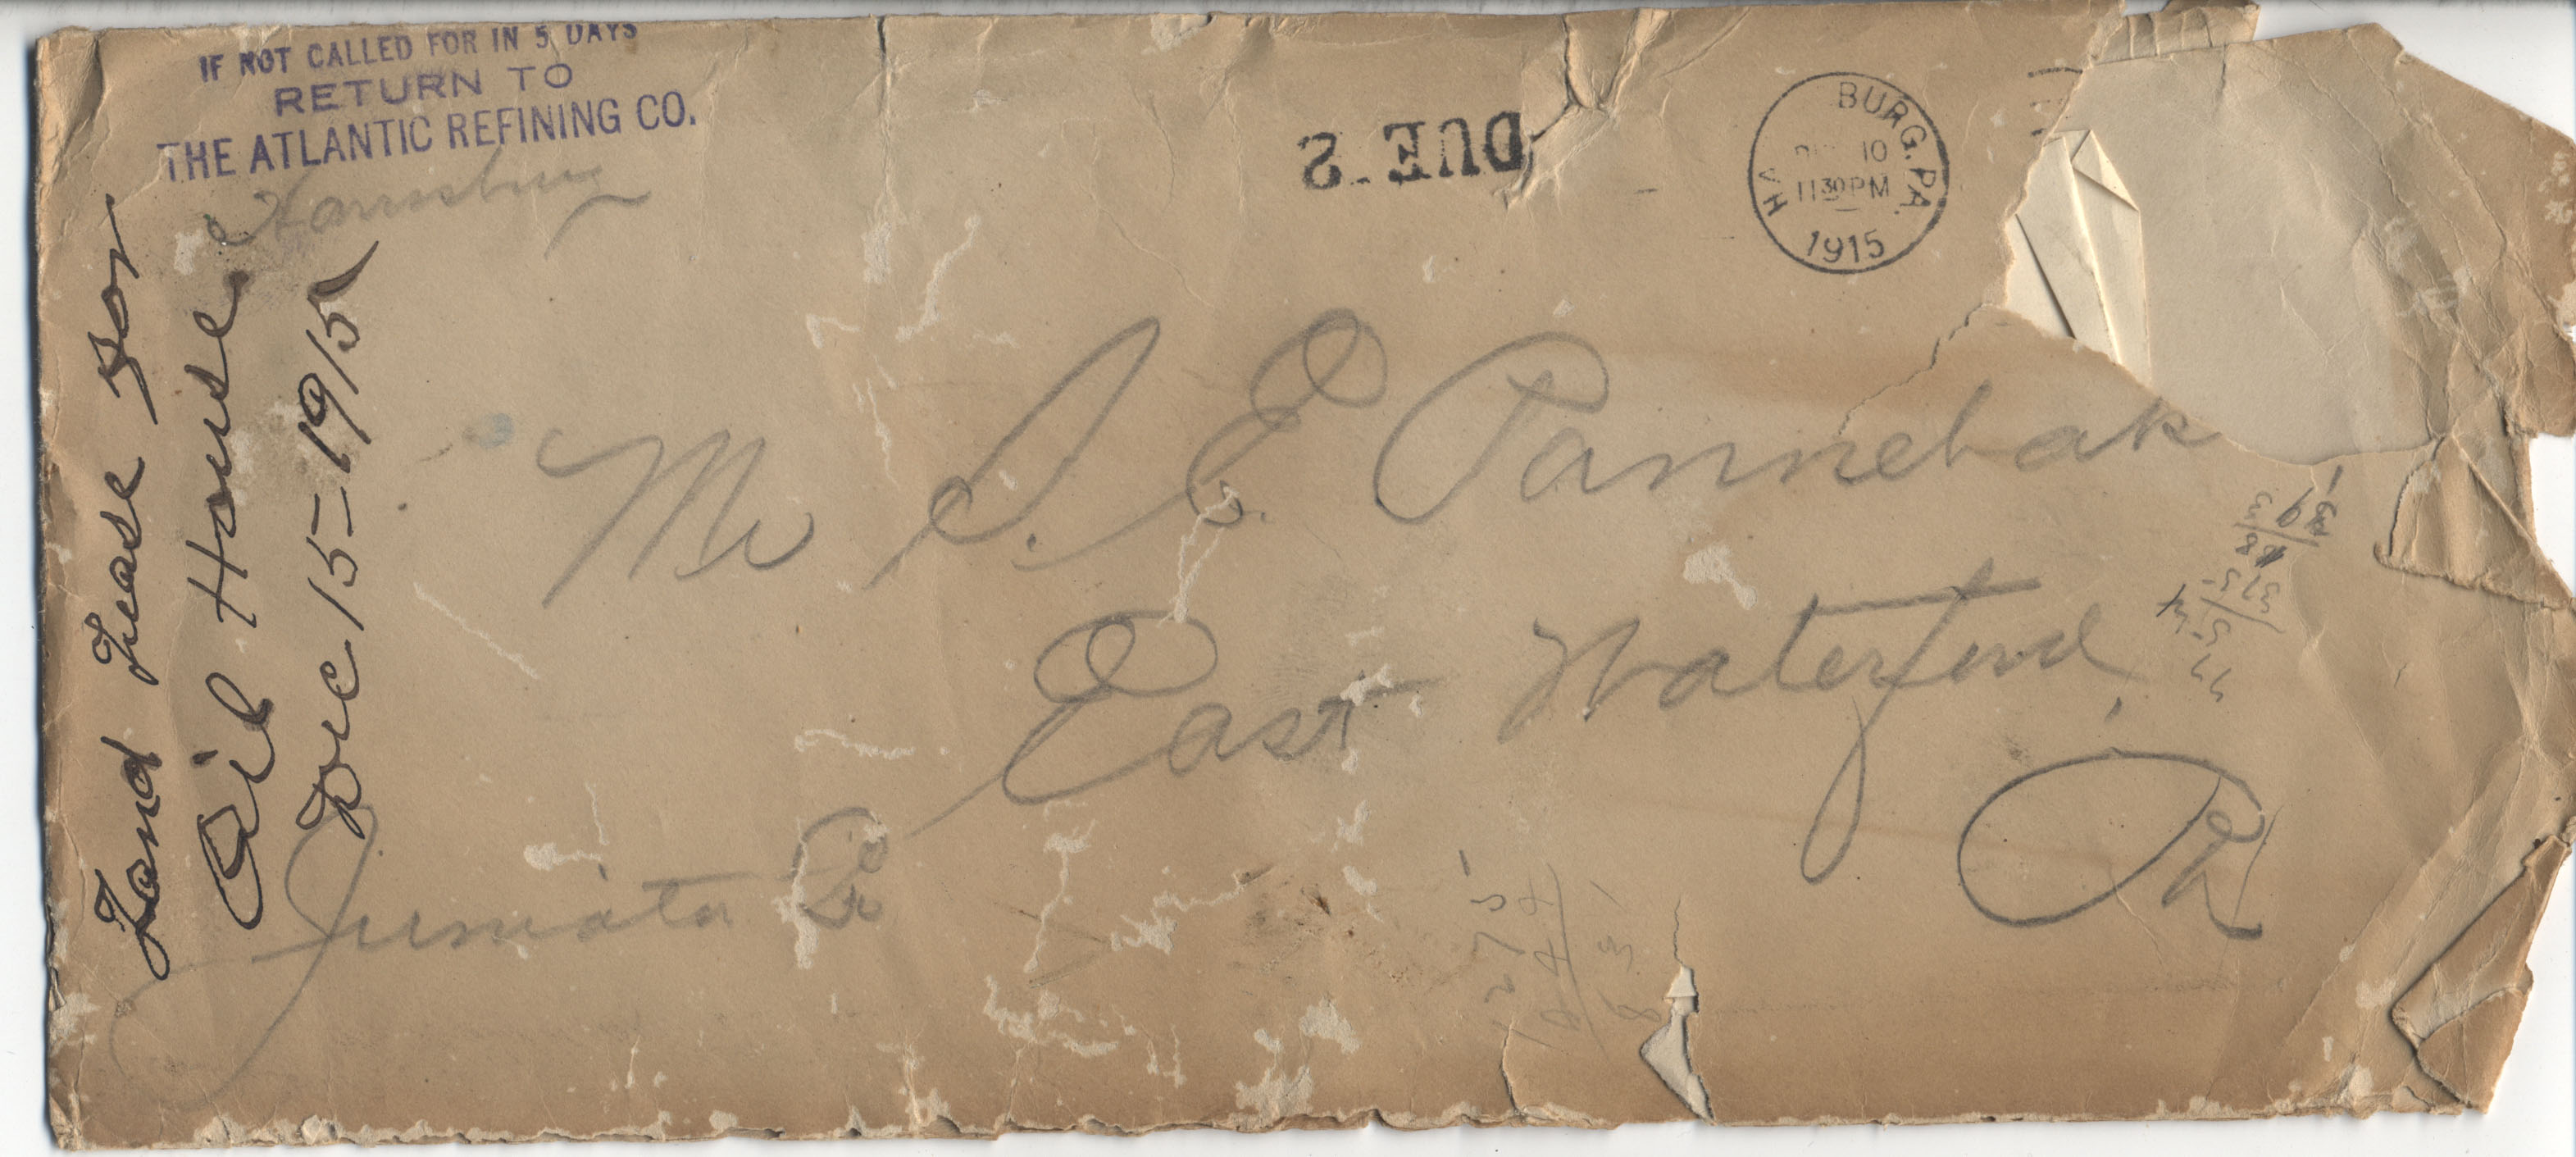 IF NOT CALLED FOR IN 5 DAYS
RETURN TO
THE ATLANTIC REFINING CO.
Harrisburg
DUE 2
HA BURG. PA.
10
11 30 PM
1915
Land Lease For
Oil House
Dec 15=1915
Mr S. E. Pannebak
East Waterford
Juniata Co
Pa